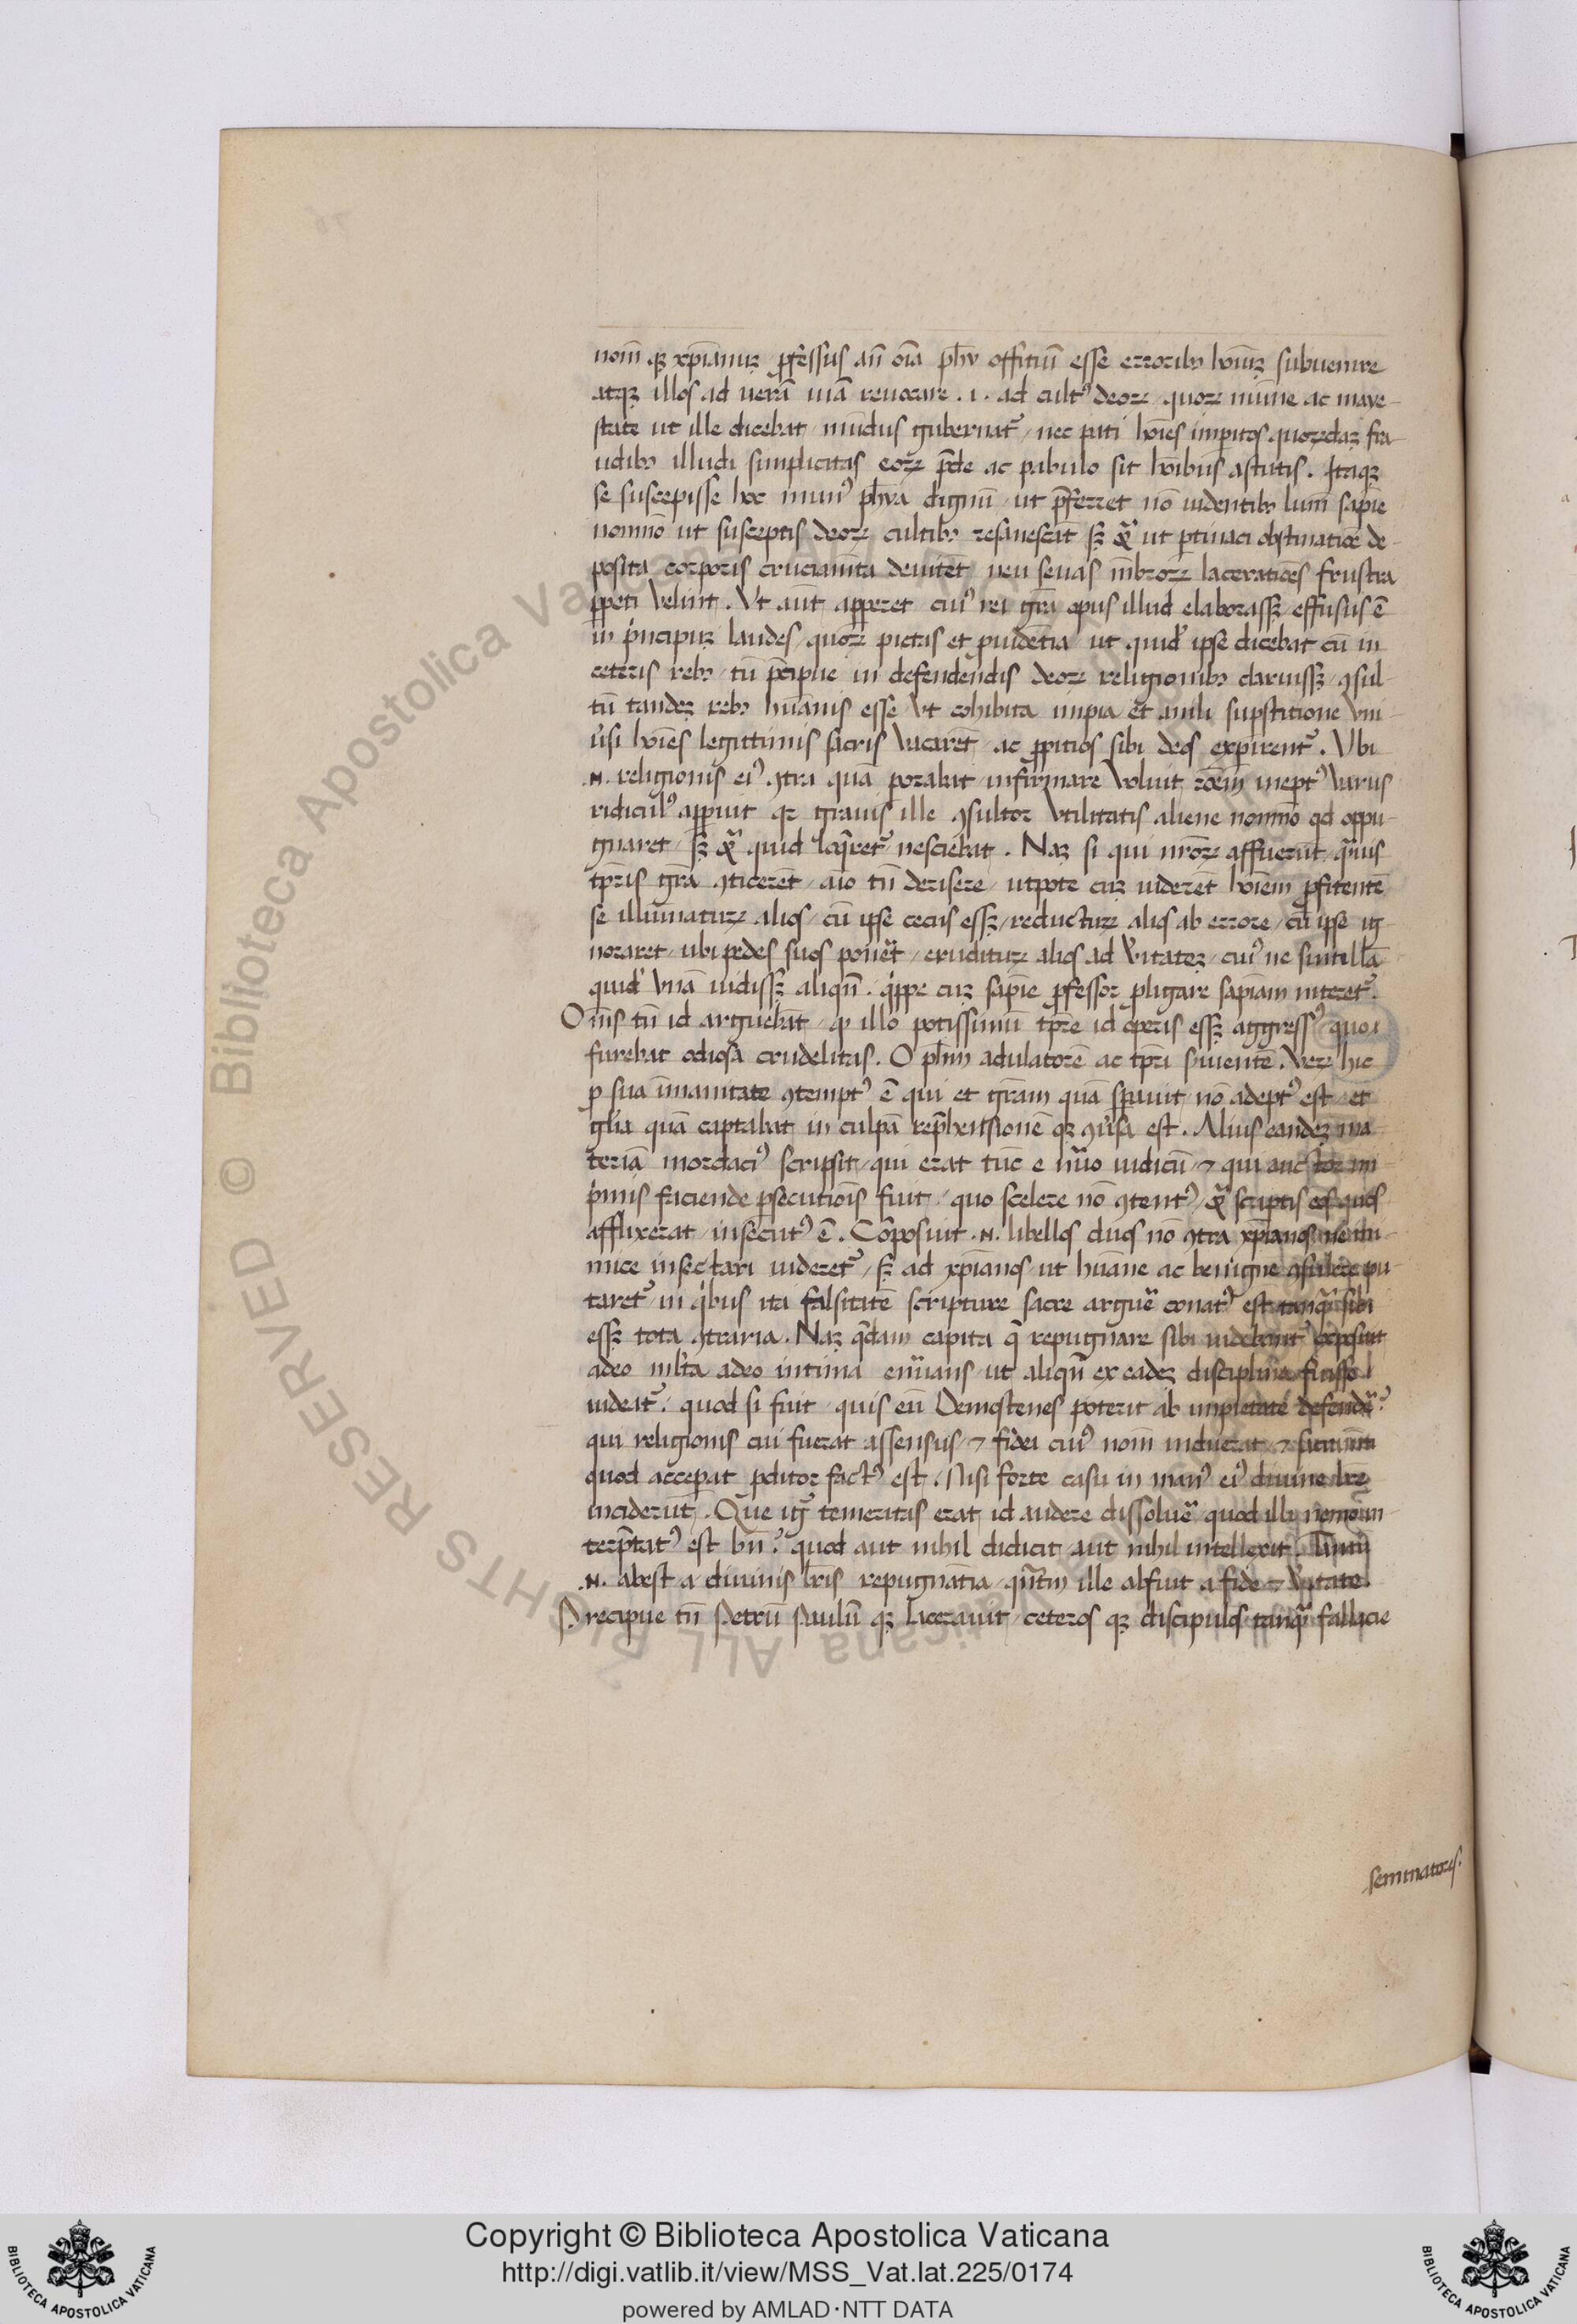 nom̄ qȝ xp̄ianuȝ ꝓfessus añ oīa ph̄i offitiū esse erroribȝ hoīuȝ subuenire
atqȝ illos ad uerā uiā reuocare .i. ad cultꝰ deoꝝ quoꝝ nūīne ac maye-
state ut ille dicebat mundus gubernat᷑ nec pati hoīes imꝑitos quorūdaȝ fra
udibȝ illudi simplicitas eoꝝ p̄de ac pabulo sit hoībus astutis. Itaqȝ
se suscepisse hoc munꝰ ph̄ia dignū ut p̄ferret nō uidentibȝ lum̄ sapīe
nonmō ut susceptis deoꝝ cultibȝ resanescāt sȝ & ut ꝑtinaci obstinatiōe de-
posita corporis cruciam̄ta deuitēt neu seuas mēbroꝝ laceratiōes frustra
ꝑpeti velint. Ut aūt apperet cuiꝰ rei gr̄a opus illud elaborassȝ effusus ē
in pͥncipuȝ laudes quoꝝ pietas et ꝓuidentia ut quidē ipse dicebat cū in
ceteris rebȝ tū p̄cipue in defendendis deoꝝ religionibȝ claruissȝ ꝯsul-
tū tandeȝ rebȝ huānis esse Ut cohibita impia et anili supstitione vni-
ūsi hoīes legittimis sacris vacarēt ac ꝓpitios sibi deos expirent᷑. Ubi
.n. religionis eiꝰ ꝯtra quā ꝑorabat infirmare voluit rōem ineptꝰ varus
ridiculꝰ apparuit qȝ grauis ille ꝯsultor vtilitatis aliene nonmō qd oppu-
gnaret sȝ & quid loqueret᷑ nesciebat. Naȝ si qui nr̄oꝝ affuerūt quīs
tp̄ris gr̄a ꝯticerēt aīo tn̄ derisere utpote cuȝ uiderēt hoīem ꝓfitentē
se illuminaturȝ alios cū ipse cecus essȝ reducturȝ alios ab errore cū ipse ig
noraret ubi pedes suos poneret eruditurȝ alios ad v̄itateȝ cuiꝰ ne sintillā
quidē vnā uidissȝ aliqn̄ qͥppe cuȝ sapīe ꝓfessor ꝓfligare sapīam niteret᷑.
Om̄s tn̄ id arguebāt ꝙ illo potissimū tp̄re id operis essȝ aggressꝰ quo
furebat odiosa crudelitas. O ph̄m adulatorē ac tp̄ri s̄uientē. Verȝ hic
ꝓ sua īmanitate ꝯtemptꝰ ē qui et gr̄am quā speruit nō adeptꝰ est et
gl̄ia quā captabat in culpā rep̄hensionē qȝ ꝯūsa est. Alius eandeȝ ma
teriā mordaciꝰ scripsit qui erat tūc e nūo iudicū ⁊ qui auctor im
pͥmis faciende ꝑsecutionis fuit quo scelere nō ꝯtentꝰ & scriptis eos quos
afflixerat insecutꝰ ē. Cōposuit .n. libellos duos nō ꝯtra xp̄ianos ne ini-
mice insectari uideret᷑ sȝ ad xp̄ianos ut huāne ac benigne ꝯsulere pu
taret᷑ in qͥbus ita falsitatē scripture sacre arguere conatꝰ est tanqͣ sibi
essȝ tota ꝯtraria. Naȝ q̄dam capita q̄ repugnare sibi uidebant᷑ exposuit
adeo ml̄ta adeo intima enūians ut aliqn̄ ex eadeȝ disciplina fuisse
uideat᷑. quod si fuit quis eū Demostenes poterit ab impietate defendere?
qui religionis cui fuerat assensus ⁊ fidei cuiꝰ nom̄ induerat ⁊ sacram̄ti
quod acceperat ꝓditor factꝰ est. Nisi forte casu in manꝰ eiꝰ diuine lr̄e
inciderūt. Que ig᷑ temeritas erat id audere dissoluere quod illi nemo in
terp̄tatꝰ est bn̄? quod aut nihil didicit aut nihil intellexit. Tantū
.n. abest a diuinis lr̄is repugnātia qn̄tm ille abfuit a fide ⁊ v̄itate.
Precipue tn̄ Petrū Paulū qȝ lacerauit ceteros qȝ discipulos tanqͣ fallacie
seminatores.
Copyright © Biblioteca Apostolica Vaticana
http://digi.vatlib.it/view/MSS_Vat.lat.225/0174
powered by AMLAD·NTT DATA